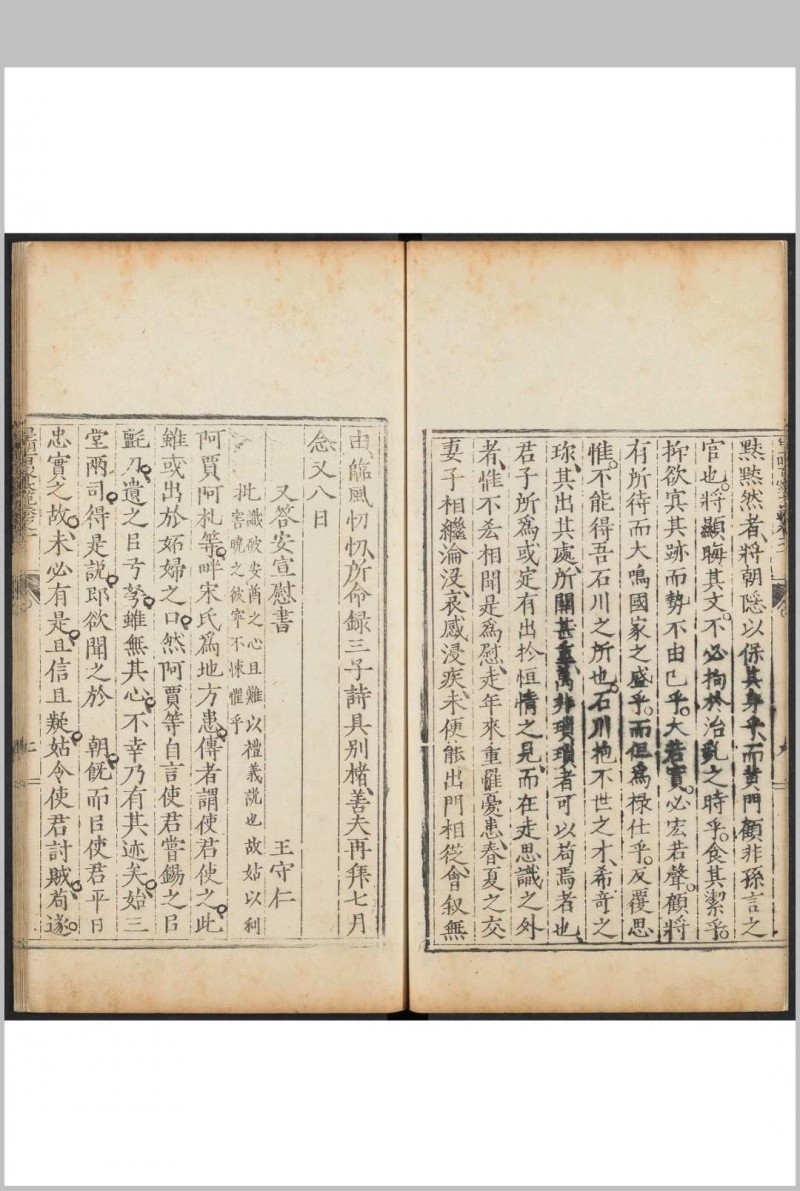 黙黙然者將朝隱以保其身乎而黄門顧非孫言之
官也將顯晦其文不必拘於治亂之時乎食其潔乎
抑欲宾其跡而勢不由已乎大若實必宏若聲顧將
有所待而大鳴國家之盛乎而但為禄仕乎反覆思
惟不能得吾石川之所也石川抱不世之才希竒之
珎其出其處所關甚重萬非瑣瑣者可以苟焉者也
君子所為或定有出扵恒情之見而在走思識之外
者惟不忝相聞是為慰走年來重罹憂患春夏之交
妻子相繼淪没哀感浸疾未便能出門相從會叙無
由臨風忉忉所命録三子詩具别楮善夫再拜七月
念又八日
又答安宣慰書
王守仁
批
識破安酋之心且難以禮義説也故姑以利
害曉之彼寧不悚懼乎
阿賈阿札等畔宋氏為地方患傳者謂使君使之此
雖或出於妬婦之口然阿賈等自言使君嘗錫之㠯
氈刀遺之㠯弓弩雖無其心不幸乃有其迹矣始三
堂兩司得是説即欲聞之於 朝旣而㠯使君平日
忠實之故未必有是且信且疑姑令使君討賊苟遂